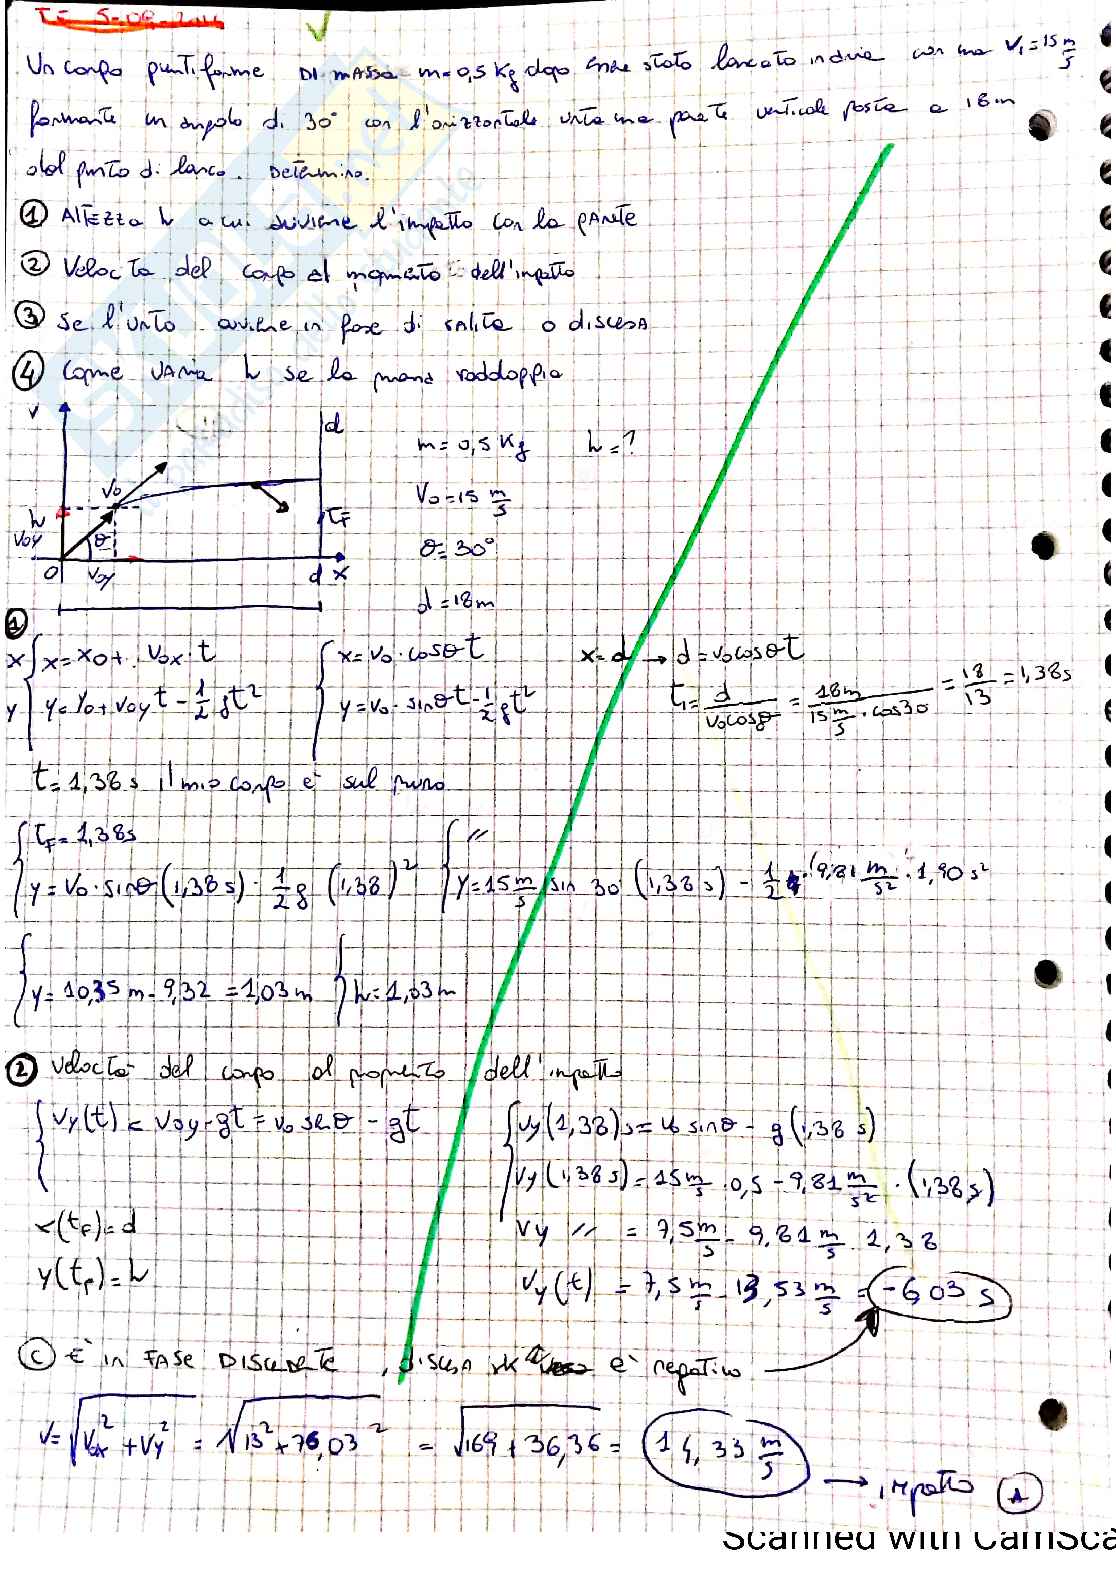 Un corpo puntiforme DI MASSA m=0,5 Kg dopo essere stato lanciato in aria con una V₁=15 m/s
formante un angolo di 30° con l'orizzontale urta una parete verticale posta a 18m
dal punto di lancio. Determino.
① ALTEZZA h a cui avviene l'impatto con la PARETE
② Velocità del corpo al momento dell'impatto
③ Se l'urto avviene in fase di salita o discesa
④ Come varia h se la massa raddoppia
m=0,5 Kg h=?
V₀=15 m/s
θ=30°
d=18m
y d
V₀
h
V₀y θ t_F
O V₀y d x
①
x { x=x₀+ V₀x·t { x=V₀·cosθt x=d → d=V₀cosθt
y { y=y₀+V₀yt-1/2 gt² { y=V₀·sinθt-1/2 gt² t₁=d/(V₀cosθ)=18m/(15 m/s·cos30)=18/13=1,38s
t=1,38s il mio corpo è sul muro
{ t_F=1,38s { //
{ y=V₀·sinθ(1,38s)-1/2 g (1,38)² { y=15 m/s sin 30 (1,38s)-1/2·(9,81 m/s²·1,90s²
{ y=10,35m-9,32=1,03m { h=1,03m
② Velocità del corpo al momento dell'impatto
{ Vy(t)=V₀y-gt=V₀ senθ-gt { Vy(1,38)s=V₀ sinθ-g(1,38s)
{ Vy(1,38s)=15 m/s·0,5-9,81 m/s²·(1,38s)
x(t_F)=d Vy // =7,5 m/s-9,81 m/s·1,38
y(t_F)=h Vy(t)=7,5 m/s-13,53 m/s=-6,03 s
Ⓒ È in FASE DISCENDENTE, DISCESA è negativo
V=√(V₀x²+Vy²)=√(13²+6,03²)=√(169+36,36)=14,33 m/s → impatto Ⓐ
Scanned with CamSca